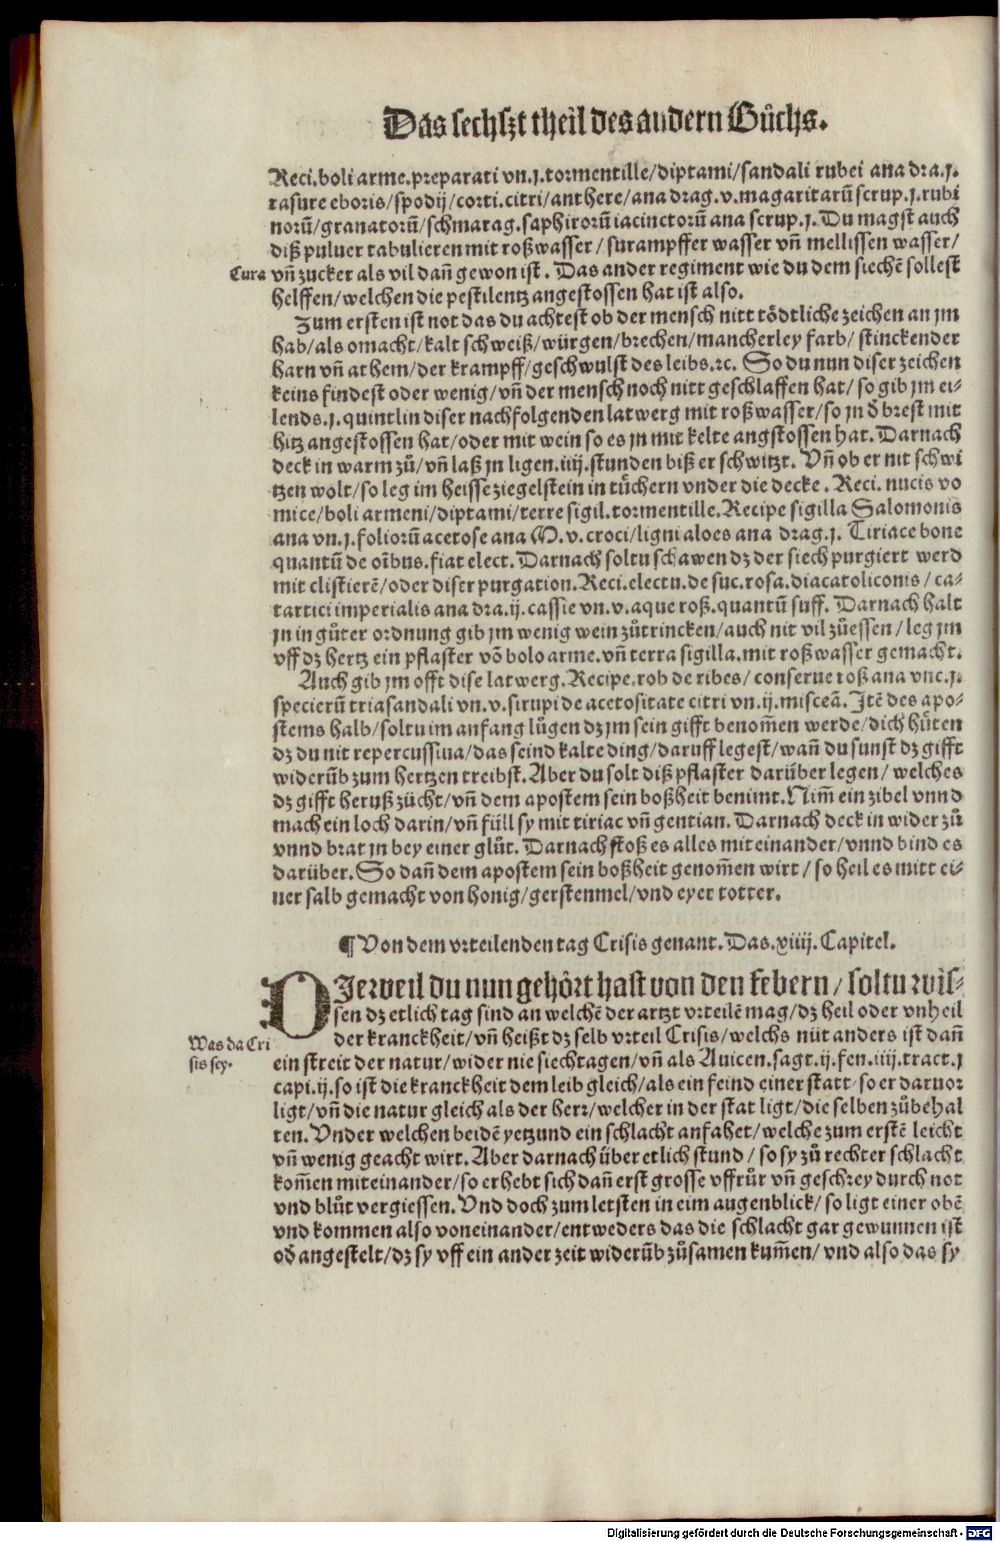 Das sechszt theil des andern Bůchs.
Reci.boli arme.preparati vn.j.tormentille/diptami/sandali rubei ana dra.j.
rasure eboris/spodij/corti.citri/anthere/ana drag.v.magaritarū scrup.j.rubi
norū/granatorū/schmarag.saphirorū iacinctorū ana scrup.j. Du magst auch
diß puluer tabulieren mit roßwasser/ surampffer wasser vn̄ mellissen wasser/
Cura vn̄ zucker als vil dan̄ gewon ist. Das ander regiment wie du dem siechē sollest
helffen/welchen die pestilentz angestossen hat ist also.
Zum ersten ist not das du achtest ob der mensch nitt tödtliche zeichen an jm
hab/als omacht/kalt schweiß/würgen/brechen/mancherley farb/ stinckender
harn vn̄ athem/der krampff/geschwulst des leibs.ꝛc. So du nun diser zeichen
keins findest oder wenig/vn̄ der mensch noch nitt geschlaffen hat/ so gib jm ei-
lends.j.quintlin diser nachfolgenden latwerg mit roßwasser/so jn d̄ brest mit
hitz angestossen hat/oder mit wein so es jn mit kelte angstossen hat. Darnach
deck in warm zů/vn̄ laß jn ligen.iiij.stunden biß er schwitzt. Vn̄ ob er nit schwi
tzen wolt/so leg im heisse ziegelstein in tůchern vnder die decke. Reci. nucis vo
mice/boli armeni/diptami/terre sigil.tormentille.Recipe sigilla Salomonis
ana vn.j.foliorū acetose ana M.v.croci/ligni aloes ana drag.j. Tiriace bone
quantū de oībus.fiat elect. Darnach soltu schawen dz der siech purgiert werd
mit clistierē/oder diser purgation.Reci.electu.de suc.rosa.diacatoliconis/ ca-
tartici imperialis ana dra.ij.cassie vn.v.aque roß.quantū suff. Darnach halt
jn in gůter ordnung gib jm wenig wein zůtrincken/auch nit vil zůessen/ leg jm
vff dz hertz ein pflaster vō bolo arme.vn̄ terra sigilla.mit roßwasser gemacht.
Auch gib jm offt dise latwerg.Recipe.rob de ribes/ conserue roß ana vnc.j.
specierū triasandali vn.v.sirupi de acetositate citri vn.ij.misceā. Jtē des apo-
stems halb/soltu im anfang lůgen dz jm sein gifft benom̄en werde/dich hůten
dz du nit repercussiua/das seind kalte ding/daruff legest/wan̄ du sunst dz gifft
widerūb zum hertzen treibst. Aber du solt diß pflaster darüber legen/ welches
dz gifft heruß zücht/vn̄ dem apostem sein boßheit benimt.Nim̄ ein zibel vnnd
mach ein loch darin/vn̄ füll sy mit tiriac vn̄ gentian. Darnach deck in wider zů
vnnd brat jn bey einer glůt. Darnach stoß es alles mit einander/vnnd bind es
darüber. So dan̄ dem apostem sein boßheit genom̄en wirt/ so heil es mitt ei-
ner salb gemacht von honig/gerstenmel/vnd eyer totter.
¶ Von dem vrteilenden tag Crisis genant. Das.xiiij.Capitel.
DJerweil du nun gehört hast von den febern/ soltu wis-
sen dz etlich tag sind an welchē der artzt vrteilē mag/dz heil oder vnheil
der kranckheit/vn̄ heißt dz selb vrteil Crisis/welchs nüt anders ist dan̄
Was da Cri
sis sey.
ein streit der natur/wider nie siechtagen/vn̄ als Auicen.sagt.ij.fen.iiij.tract.j
capi.ij.so ist die kranckheit dem leib gleich/als ein feind einer statt/so er daruor
ligt/vn̄ die natur gleich als der herr/welcher in der stat ligt/die selben zůbehal
ten. Vnder welchen beidē yetzund ein schlacht anfahet/welche zum erstē leicht
vn̄ wenig geacht wirt. Aber darnach über etlich stund/ so sy zů rechter schlacht
kom̄en mit einander/so erhebt sich dan̄ erst grosse vffrůr vn̄ geschrey durch not
vnd blůt vergiessen. Vnd doch zum letsten in eim augenblick/ so ligt einer obē
vnd kommen also voneinander/entweders das die schlacht gar gewunnen ist
od̄ angestelt/dz sy vff ein ander zeit widerūb zůsamen kum̄en/ vnd also das sy
Digitalisierung gefördert durch die Deutsche Forschungsgemeinschaft - DFG